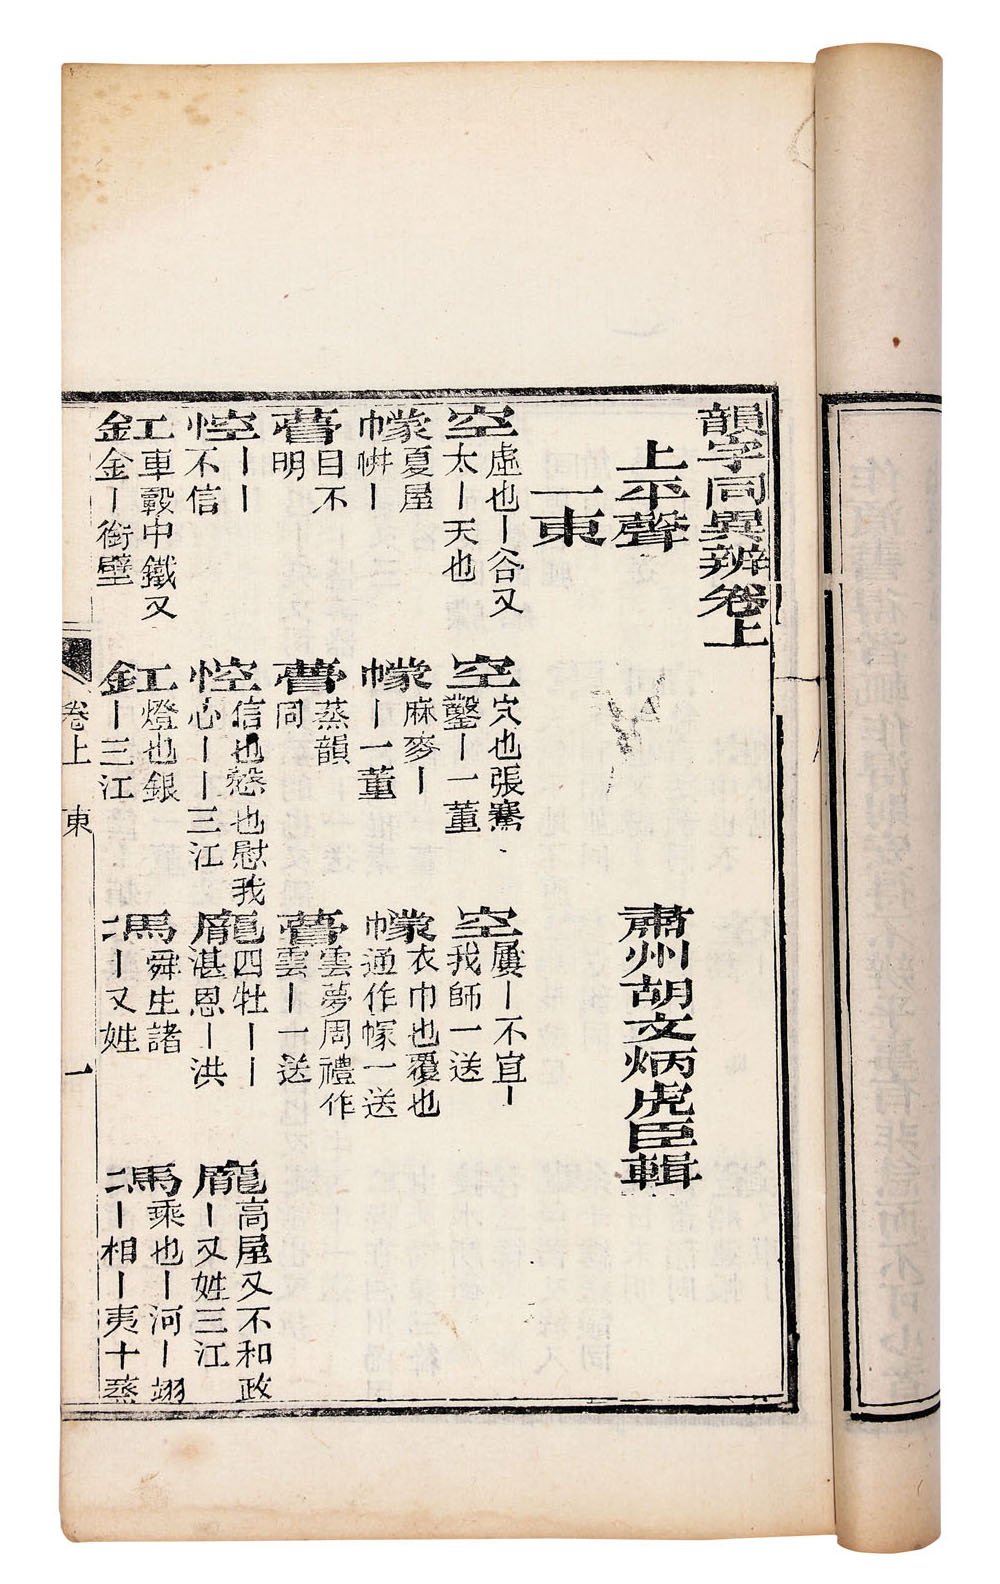 韻字同異辨卷上
上平聲
肅州胡文炳虎臣輯
一東
空 虛也｜谷又太｜天也 空 穴也張騫鑿｜一董 空 屢｜不宜｜我師一送
幪 夏屋帡｜ 幪 麻麥｜｜一董 幪 衣巾也覆也巾通作幏一送
瞢 目不明 瞢 蒸韻同 瞢 雲夢周禮作雲｜一送
悾 ｜｜不信 悾 信也慤也慰我心｜｜三江 龐 四牡｜｜湛恩｜洪 龐 高屋又不和政｜又姓三江
釭 車轂中鐵又金｜銜壁 釭 燈也銀｜三江 馮 舜生諸｜又姓 馮 乘也｜河｜翊｜相｜夷十蒸
卷上 東 一